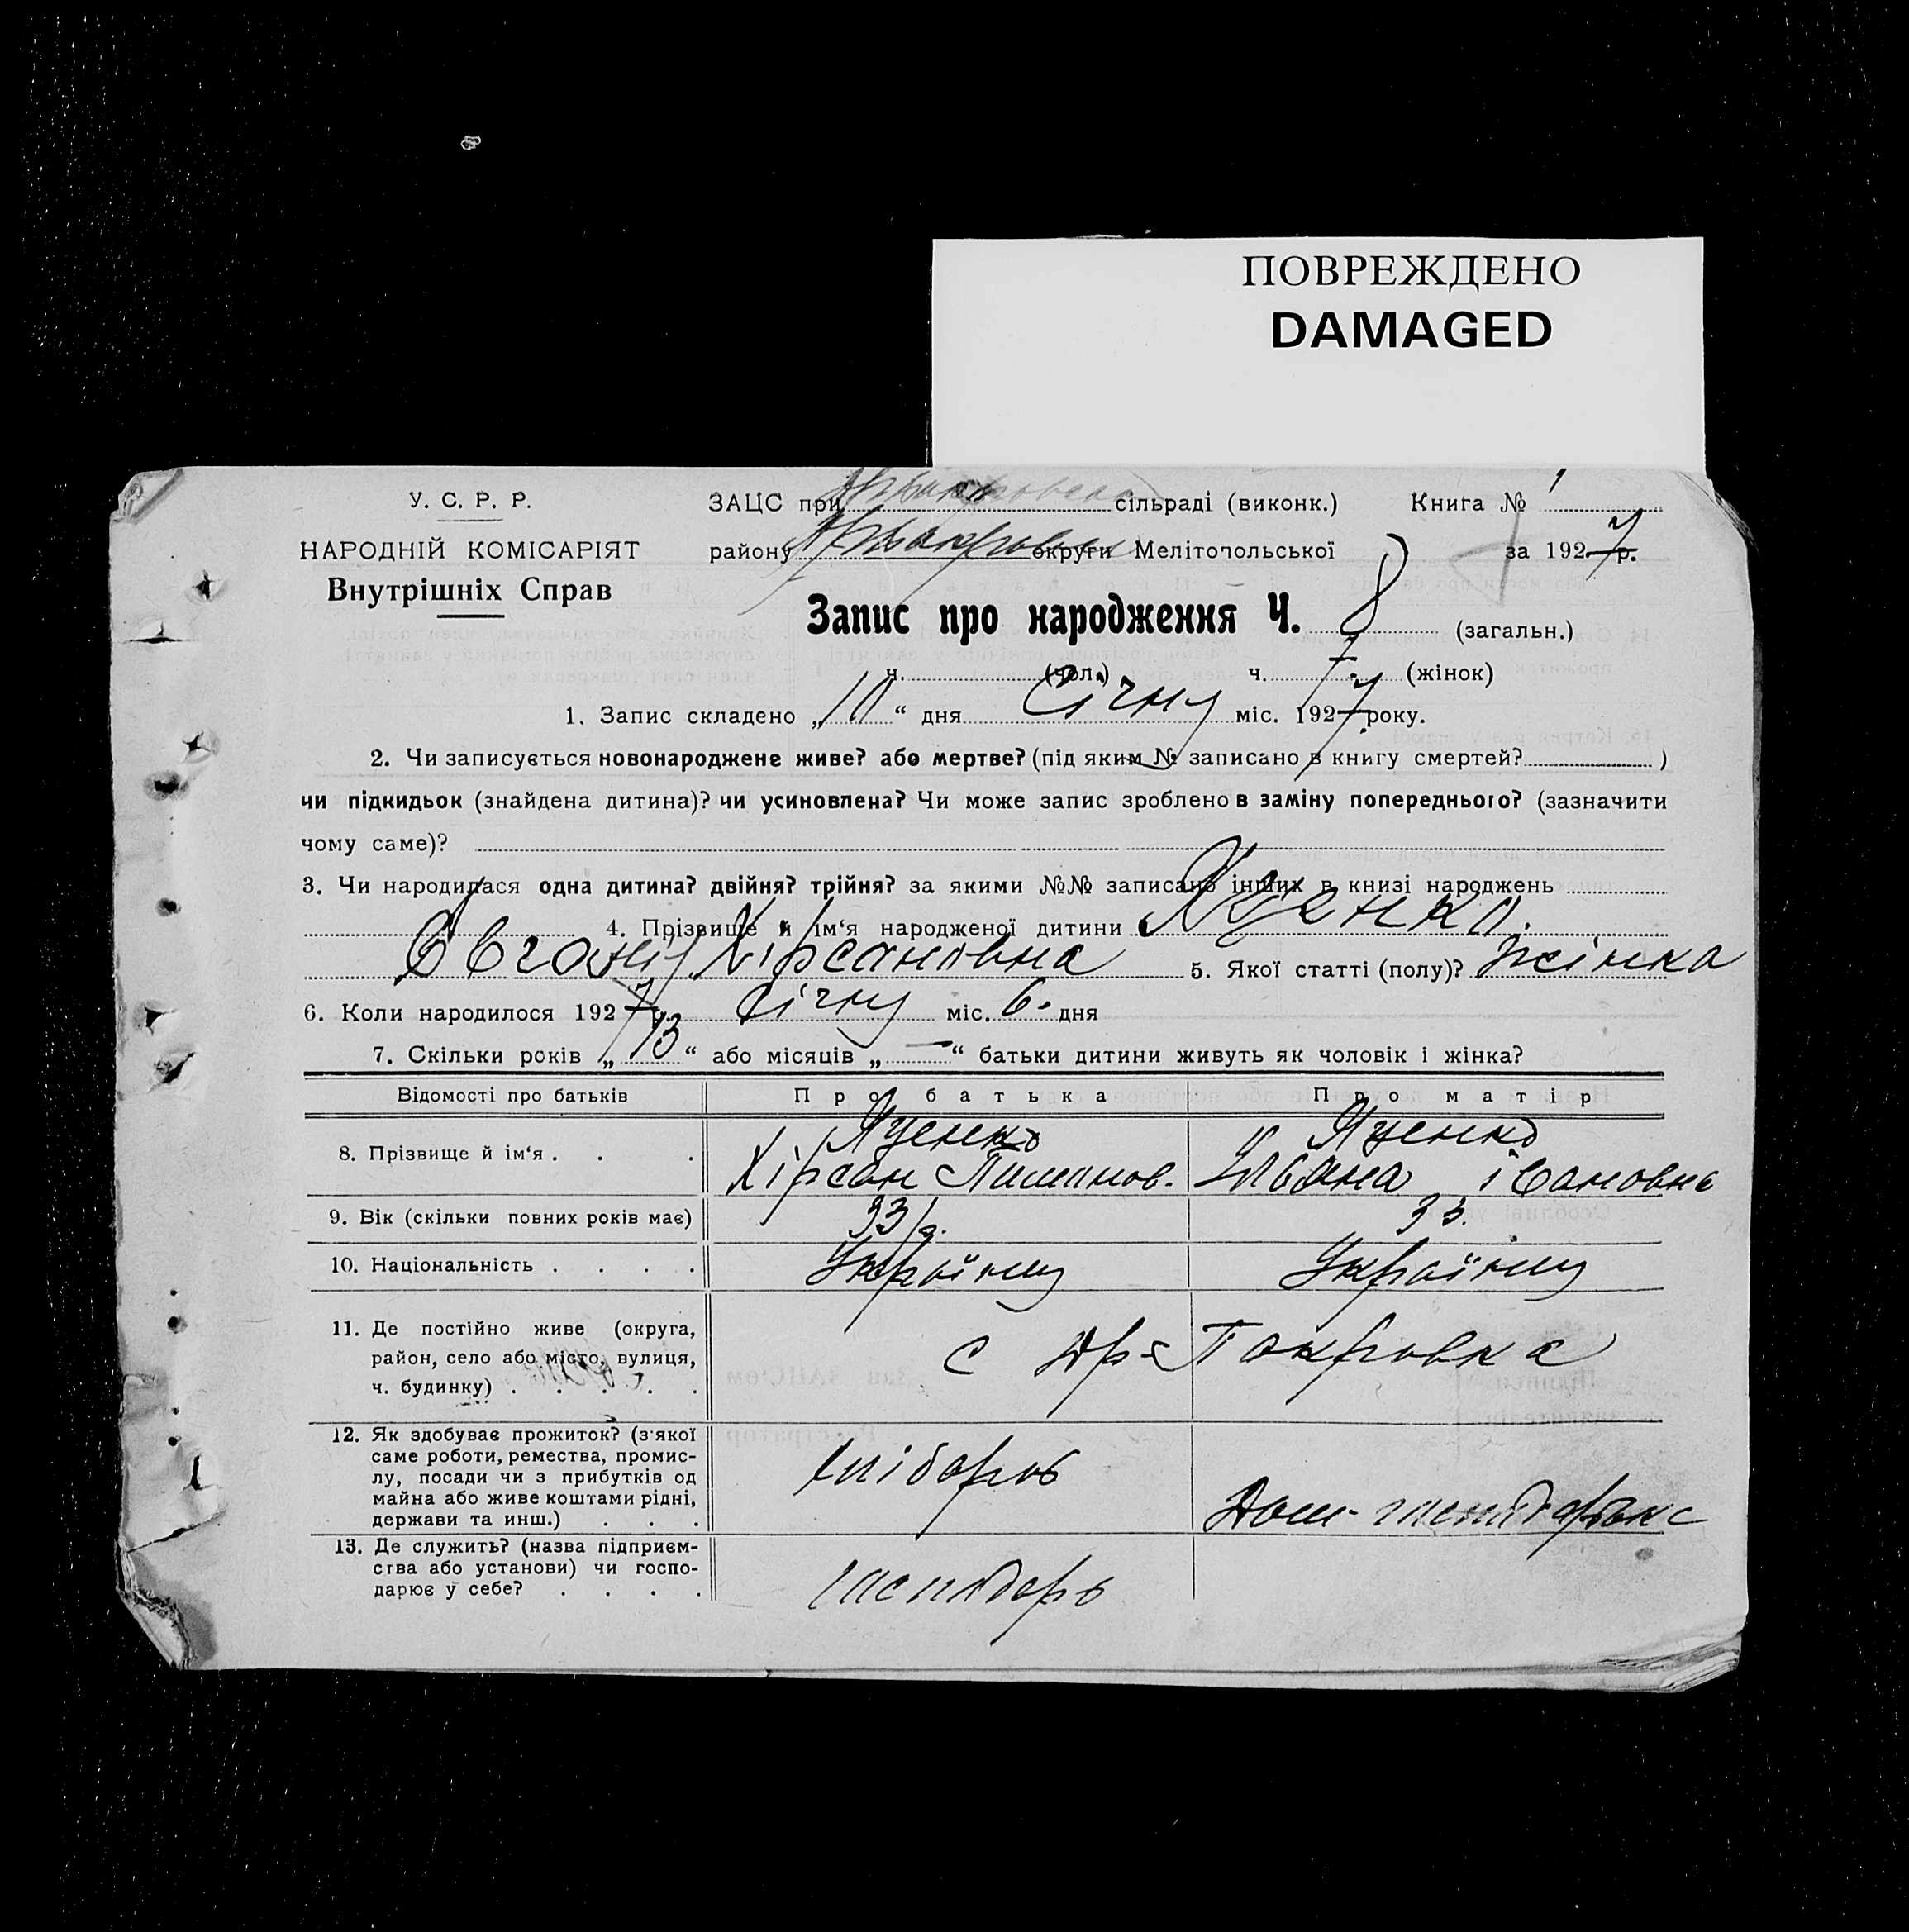 ПОВРЕЖДЕНО
DAMAGED
У. С. Р. Р.
НАРОДНІЙ КОМІСАРІЯТ
Внутрішніх Справ
ЗАЦС при сільраді (виконк.) Книга № 1
району округи Мелітопольської за 1927 р.
Запис про народження Ч. 8 (загальн.)
ч. (чол.) ч. 7 (жінок)
1. Запис складено „10“ дня Січня міс. 1927 року.
2. Чи записується новонароджене живе? або мертве? (під яким № записано в книгу смертей? )
чи підкидьок (знайдена дитина)? чи усиновлена? Чи може запис зроблено в заміну попереднього? (зазначити
чому саме)?
3. Чи народилася одна дитина? двійня? трійня? за якими №№ записано інших в книзі народжень
4. Прізвище й ім‘я народженої дитини Яценко.
Хірсановна 5. Якої статті (полу)? жінка
6. Коли народилося 1927 р. Січня міс. 6. дня
7. Скільки років „13“ або місяців „—“ батьки дитини живуть як чоловік і жінка?
Відомості про батьків Про батька Про матір
8. Прізвище й ім‘я . . . Яценко Яценко
Хірсан Ульяна івановна
9. Вік (скільки повних років має) 33 33.
10. Національність . . . . Україн Україн
11. Де постійно живе (округа,
район, село або місто, вулиця,
ч. будинку) . . . . . с Покровка
12. Як здобуває прожиток? (з'якої
саме роботи, ремества, промис-
лу, посади чи з прибутків од
майна або живе коштами рідні,
держави та инш.) . . . хлібороб Дом-
13. Де служить? (назва підприєм-
ства або установи) чи госпо-
дарює у себе? . . . .